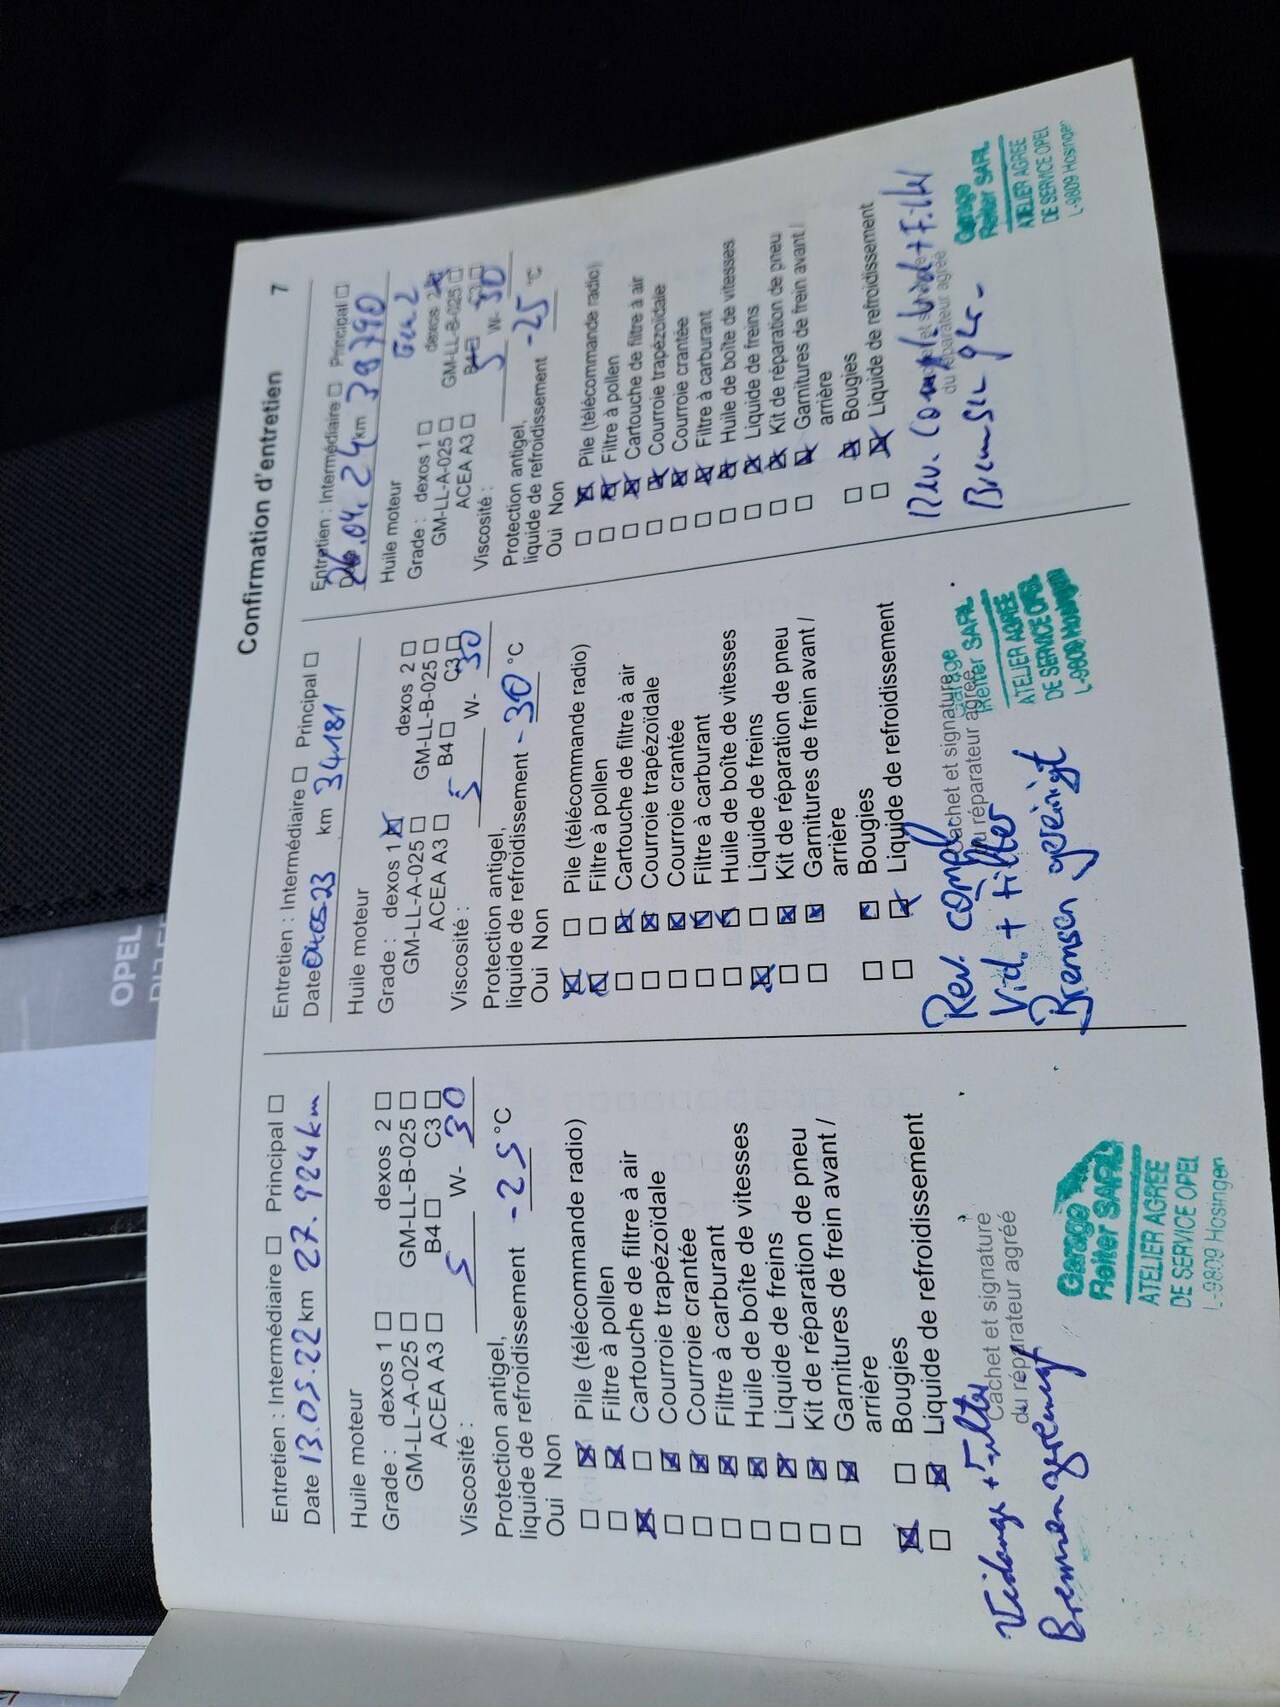 Confirmation d'entretien 7
Entretien : Intermédiaire □ Principal □
Date 13.05.22 km 27.924km
Huile moteur
Grade : dexos 1 □ dexos 2 □
GM-LL-A-025 □ GM-LL-B-025 □
ACEA A3 □ B4 □ C3 □
Viscosité : 5 W- 30
Protection antigel,
liquide de refroidissement -25 °C
Oui Non
□ ☒ Pile (télécommande radio)
□ ☒ Filtre à pollen
☒ □ Cartouche de filtre à air
□ ☒ Courroie trapézoïdale
□ ☒ Courroie crantée
□ ☒ Filtre à carburant
□ ☒ Huile de boîte de vitesses
□ ☒ Liquide de freins
□ ☒ Kit de réparation de pneu
□ ☒ Garnitures de frein avant /
arrière
☒ □ Bougies
□ ☒ Liquide de refroidissement
Cachet et signature
du réparateur agréé
Vidange + Filter
Bremsen gereinigt
Garage
Reiter SARL
ATELIER AGREE
DE SERVICE OPEL
L-9809 Hosingen
Entretien : Intermédiaire □ Principal □
Date 04.05.23 km 34181
Huile moteur
Grade : dexos 1 ☒ dexos 2 □
GM-LL-A-025 □ GM-LL-B-025 □
ACEA A3 □ B4 □ C3 □
Viscosité : 5 W- 30
Protection antigel,
liquide de refroidissement -30 °C
Oui Non
☒ □ Pile (télécommande radio)
☒ □ Filtre à pollen
□ ☒ Cartouche de filtre à air
□ ☒ Courroie trapézoïdale
□ ☒ Courroie crantée
□ ☒ Filtre à carburant
□ ☒ Huile de boîte de vitesses
☒ □ Liquide de freins
□ ☒ Kit de réparation de pneu
□ ☒ Garnitures de frein avant /
arrière
□ ☒ Bougies
□ ☒ Liquide de refroidissement
Cachet et signature
du réparateur agréé
Rev. compl
Vid. + Filter
Bremsen gereinigt
Garage
Reiter SARL
ATELIER AGREE
DE SERVICE OPEL
L-9809 Hosingen
Entretien : Intermédiaire □ Principal □
Date 26.04.24 km 39790
Huile moteur Gen 2
Grade : dexos 1 □ dexos 2 ☒
GM-LL-A-025 □ GM-LL-B-025 □
ACEA A3 □ B4 □ C3 □
Viscosité : 5 W- 30
Protection antigel,
liquide de refroidissement -25 °C
Oui Non
□ ☒ Pile (télécommande radio)
□ ☒ Filtre à pollen
□ ☒ Cartouche de filtre à air
□ ☒ Courroie trapézoïdale
□ ☒ Courroie crantée
□ ☒ Filtre à carburant
□ ☒ Huile de boîte de vitesses
□ ☒ Liquide de freins
□ ☒ Kit de réparation de pneu
□ ☒ Garnitures de frein avant /
arrière
□ ☒ Bougies
□ ☒ Liquide de refroidissement
du réparateur agréé
Rev. compl. Vid + Filter
Bremsen
Garage
Reiter SARL
ATELIER AGREE
DE SERVICE OPEL
L-9809 Hosingen
OPEL